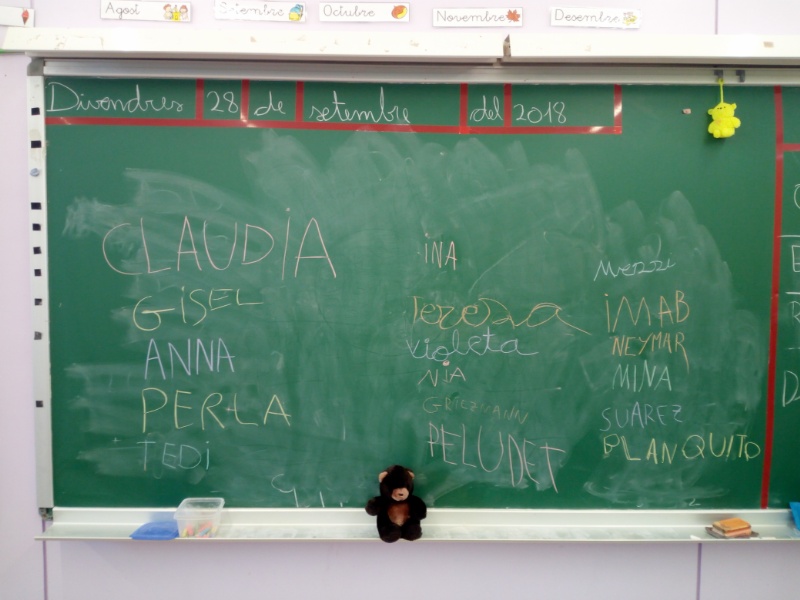 Agost Setembre Octubre Novembre Desembre
Divendres 28 de setembre del 2018
CLAUDIA
GISEL
ANNA
PERLA
TEDI
INA
Teresa
Violeta
NIA
GRIEZMANN
PELUDET
IMAB
NEYMAR
MINA
SUAREZ
PLANQUITO